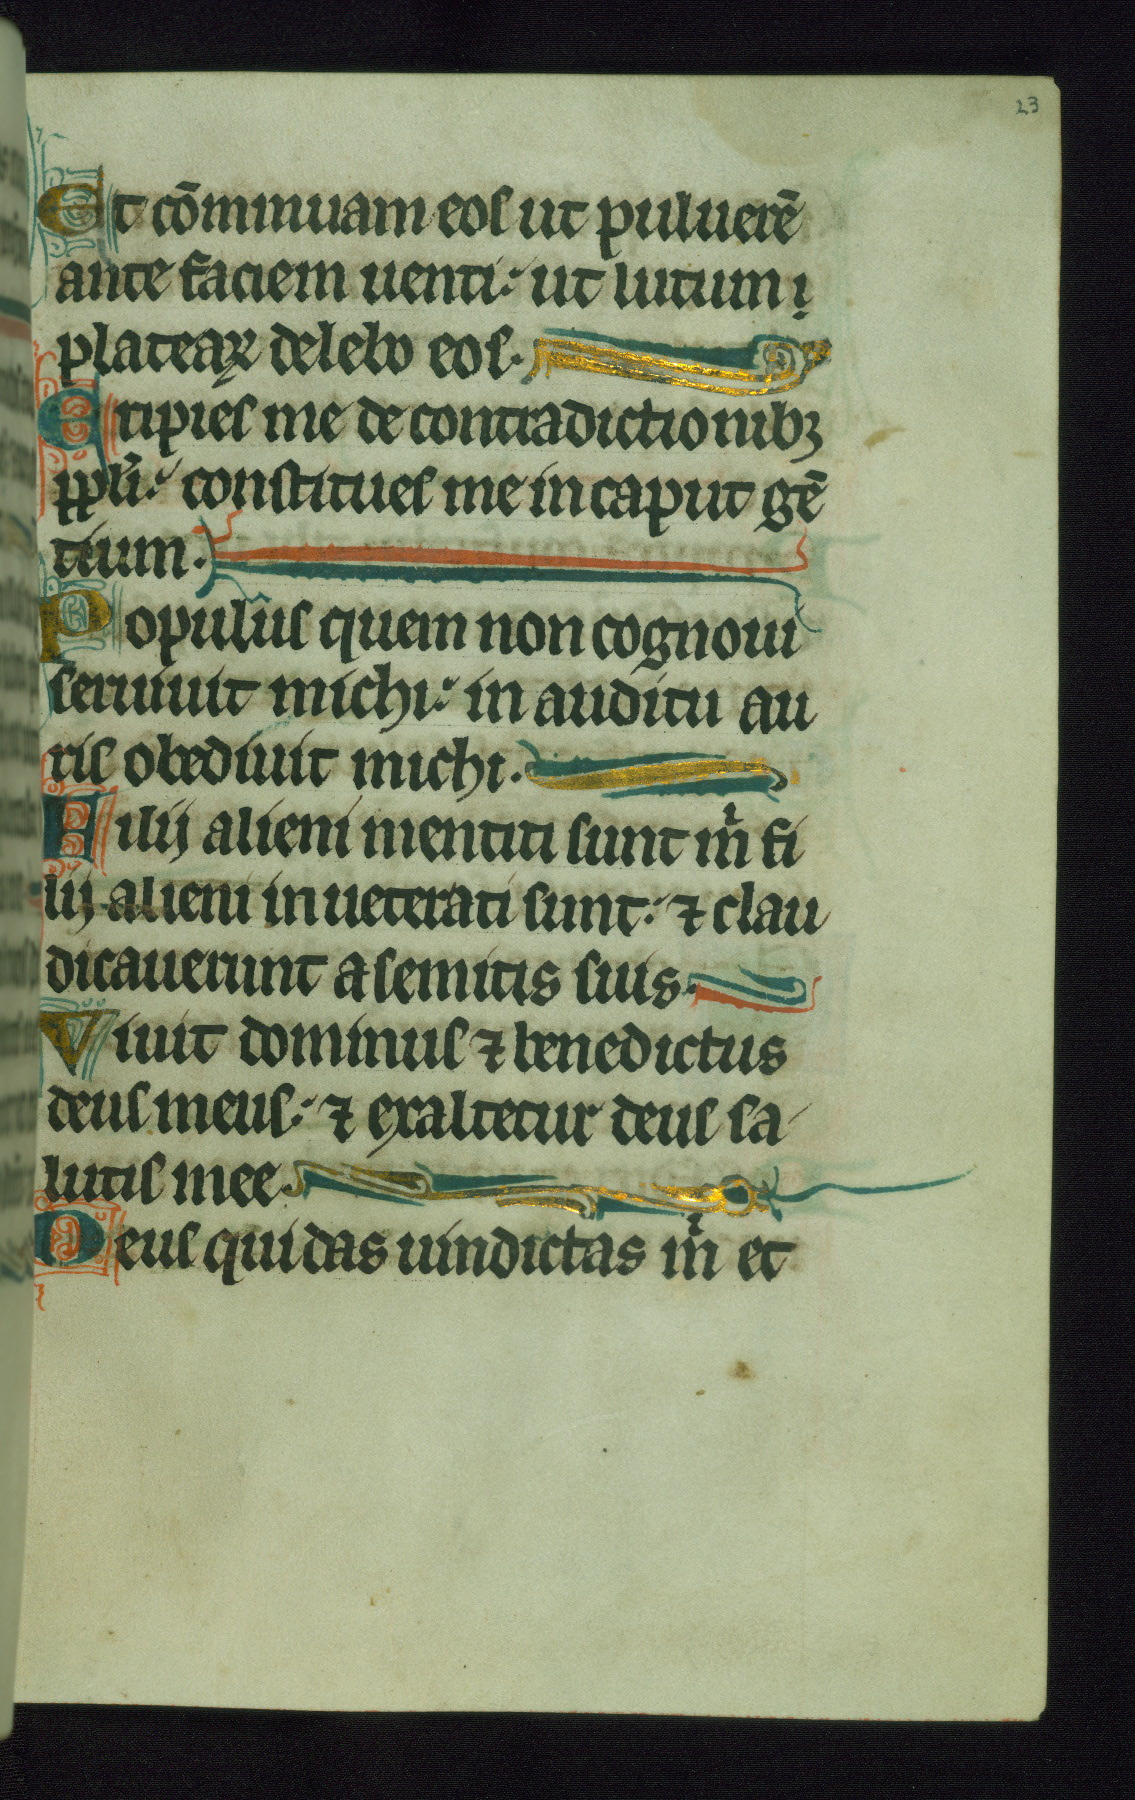 23
Et cōminuam eos ut puluerē
ante faciem uenti: ut lutum
plateaꝝ delebo eos.
Eripies me de contradictionibꝫ
ppl̄i: constitues me in caput gē
tium.
Populus quem non cognoui
seruiuit michi: in auditu au
ris obediuit michi.
Filij alieni mentiti sunt m̄ fi
lij alieni inueterati sunt: ⁊ clau
dicauerunt a semitis suis.
Viuit dominus ⁊ benedictus
deus meus: ⁊ exaltetur deus sa
lutis mee.
Deus qui das uindictas m̄ et